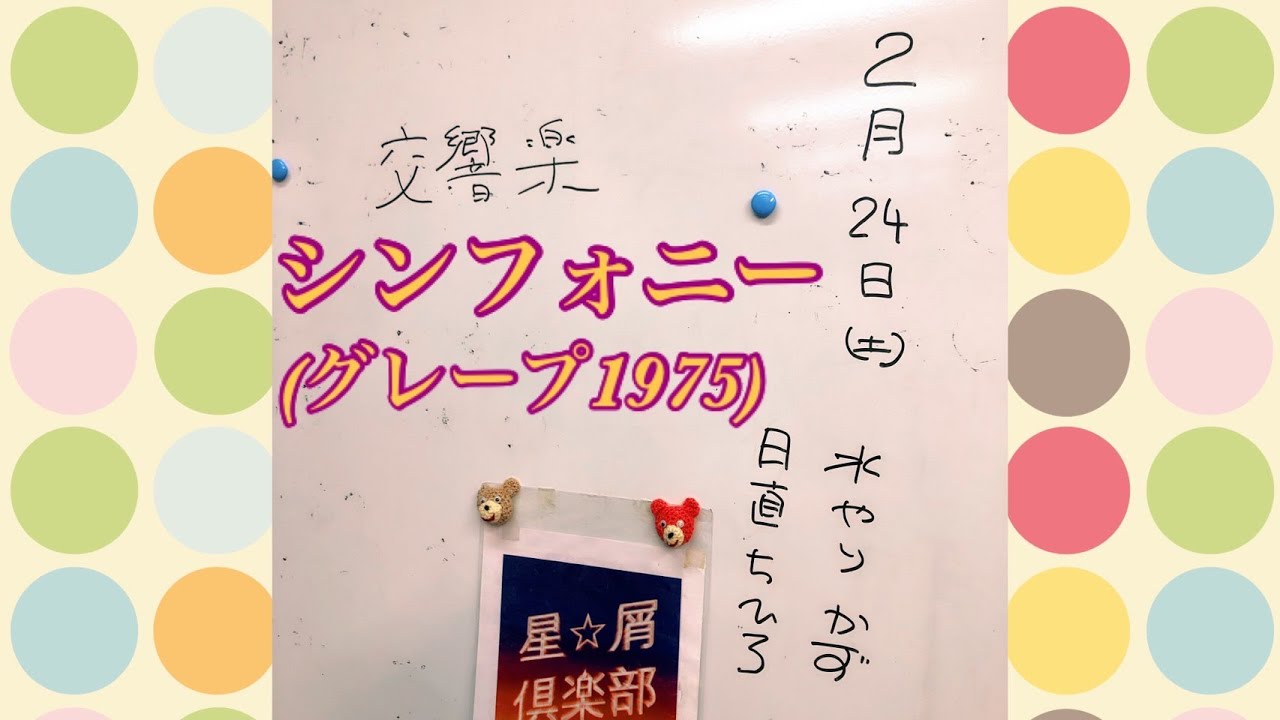 2月24日(土)
水やり かず
日直 ちひろ
交響楽
シンフォニー
(グレープ1975)
星☆屑
倶楽部